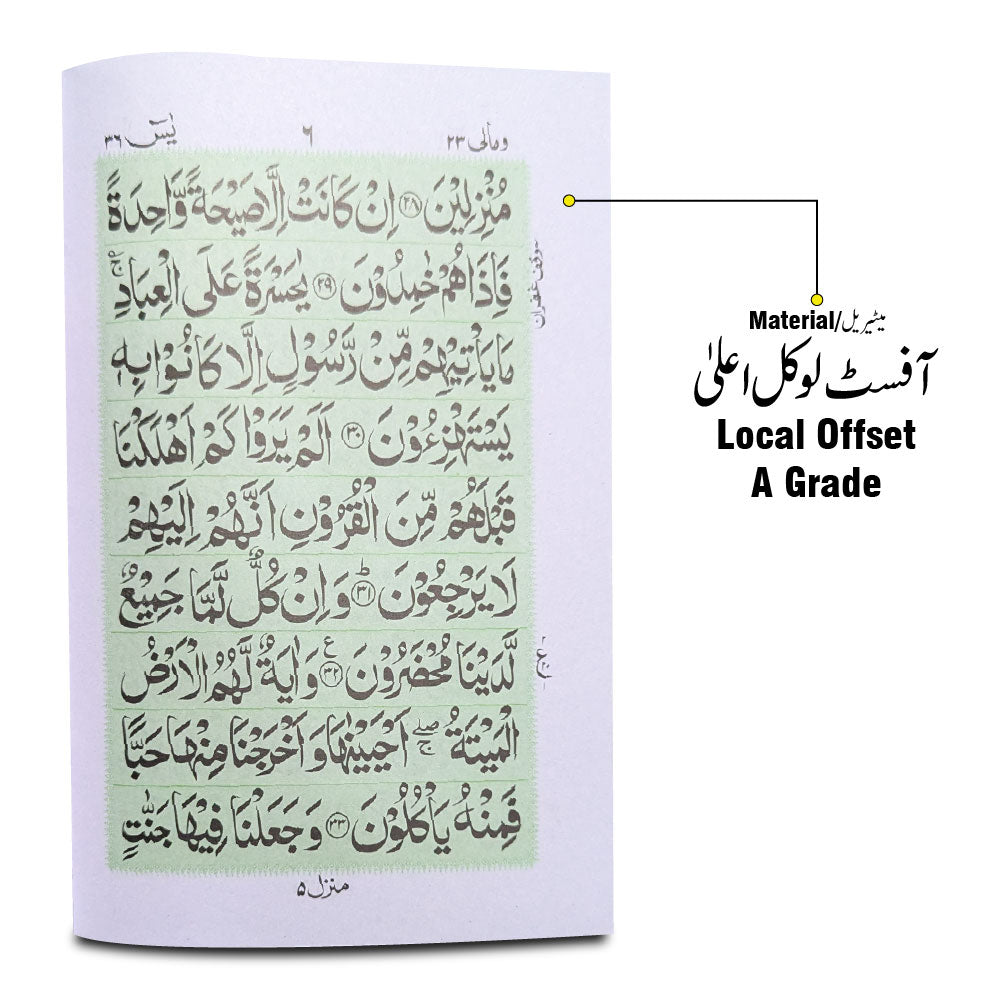 يٰسٓ ٣٦ ٦ ومالى ٢٣
مُنْزِلِيْنَ ﴿٢٨﴾ اِنْ كَانَتْ اِلَّا صَيْحَةً وَّاحِدَةً
فَاِذَا هُمْ خٰمِدُوْنَ ﴿٢٩﴾ يٰحَسْرَةً عَلَى الْعِبَادِ ۚ
مَا يَاْتِيْهِمْ مِّنْ رَّسُوْلٍ اِلَّا كَانُوْا بِهٖ
يَسْتَهْزِءُوْنَ ﴿٣٠﴾ اَلَمْ يَرَوْا كَمْ اَهْلَكْنَا
قَبْلَهُمْ مِّنَ الْقُرُوْنِ اَنَّهُمْ اِلَيْهِمْ
لَا يَرْجِعُوْنَ ﴿٣١﴾ؕ وَ اِنْ كُلٌّ لَّمَّا جَمِيْعٌ
لَّدَيْنَا مُحْضَرُوْنَ ﴿٣٢﴾ وَ اٰيَةٌ لَّهُمُ الْاَرْضُ
الْمَيْتَةُ ۖۚ اَحْيَيْنٰهَا وَ اَخْرَجْنَا مِنْهَا حَبًّا
فَمِنْهُ يَاْكُلُوْنَ ﴿٣٣﴾ وَ جَعَلْنَا فِيْهَا جَنّٰتٍ
منزل ٥
Material/میٹیریل
آفسٹ لوکل اعلیٰ
Local Offset
A Grade